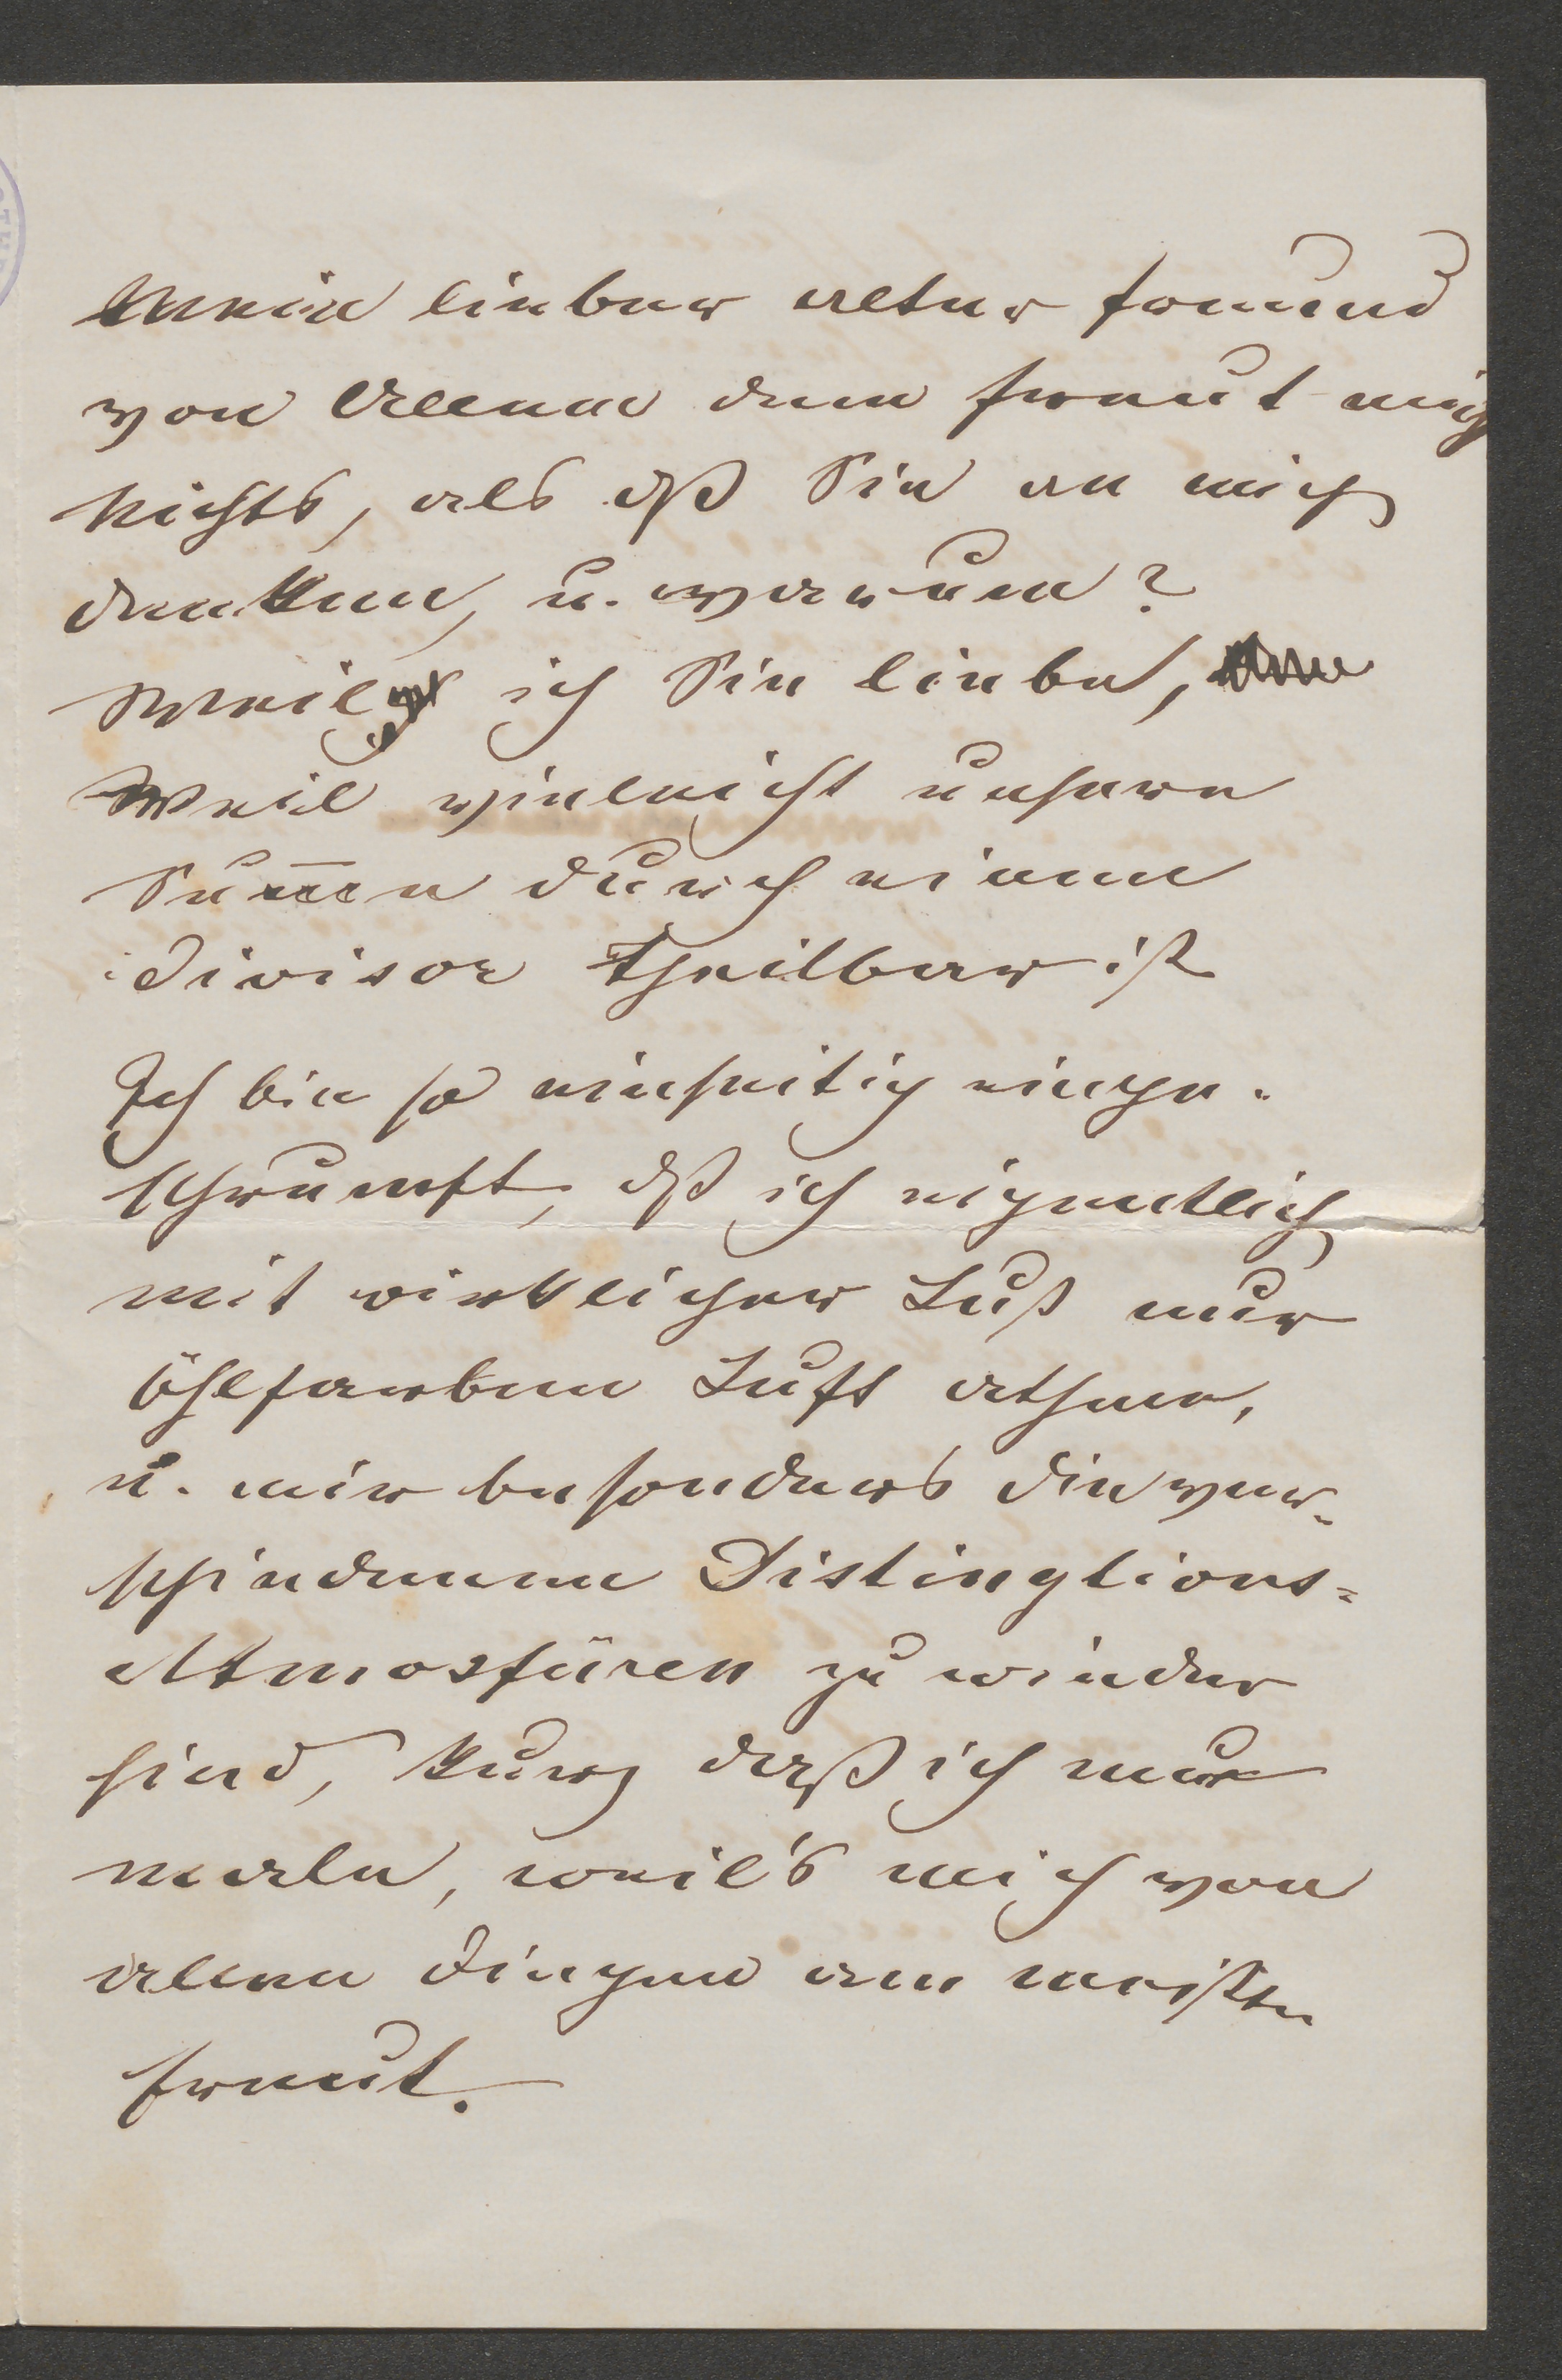 Mein lieber alter Freund
von Allem dem freut mich
nichts, als dß Sie an mich
denken, u. warum?
Weil ich Sie liebe,
weil vielleicht unsere
Sum̄e durch einen
Divisor theilbar ist
Ich bin so einseitig einge-
schrumpft, dß ich eigentlich
mit wirklicher Lust nur
öhlfarben Luft athme,
u. mir besonders die ver-
schiedenen Distingtions=
Atmosfären zu wieder
sind, kurz daß ich nur
male, weil's mich von
allen Dingen am meisten
freut.